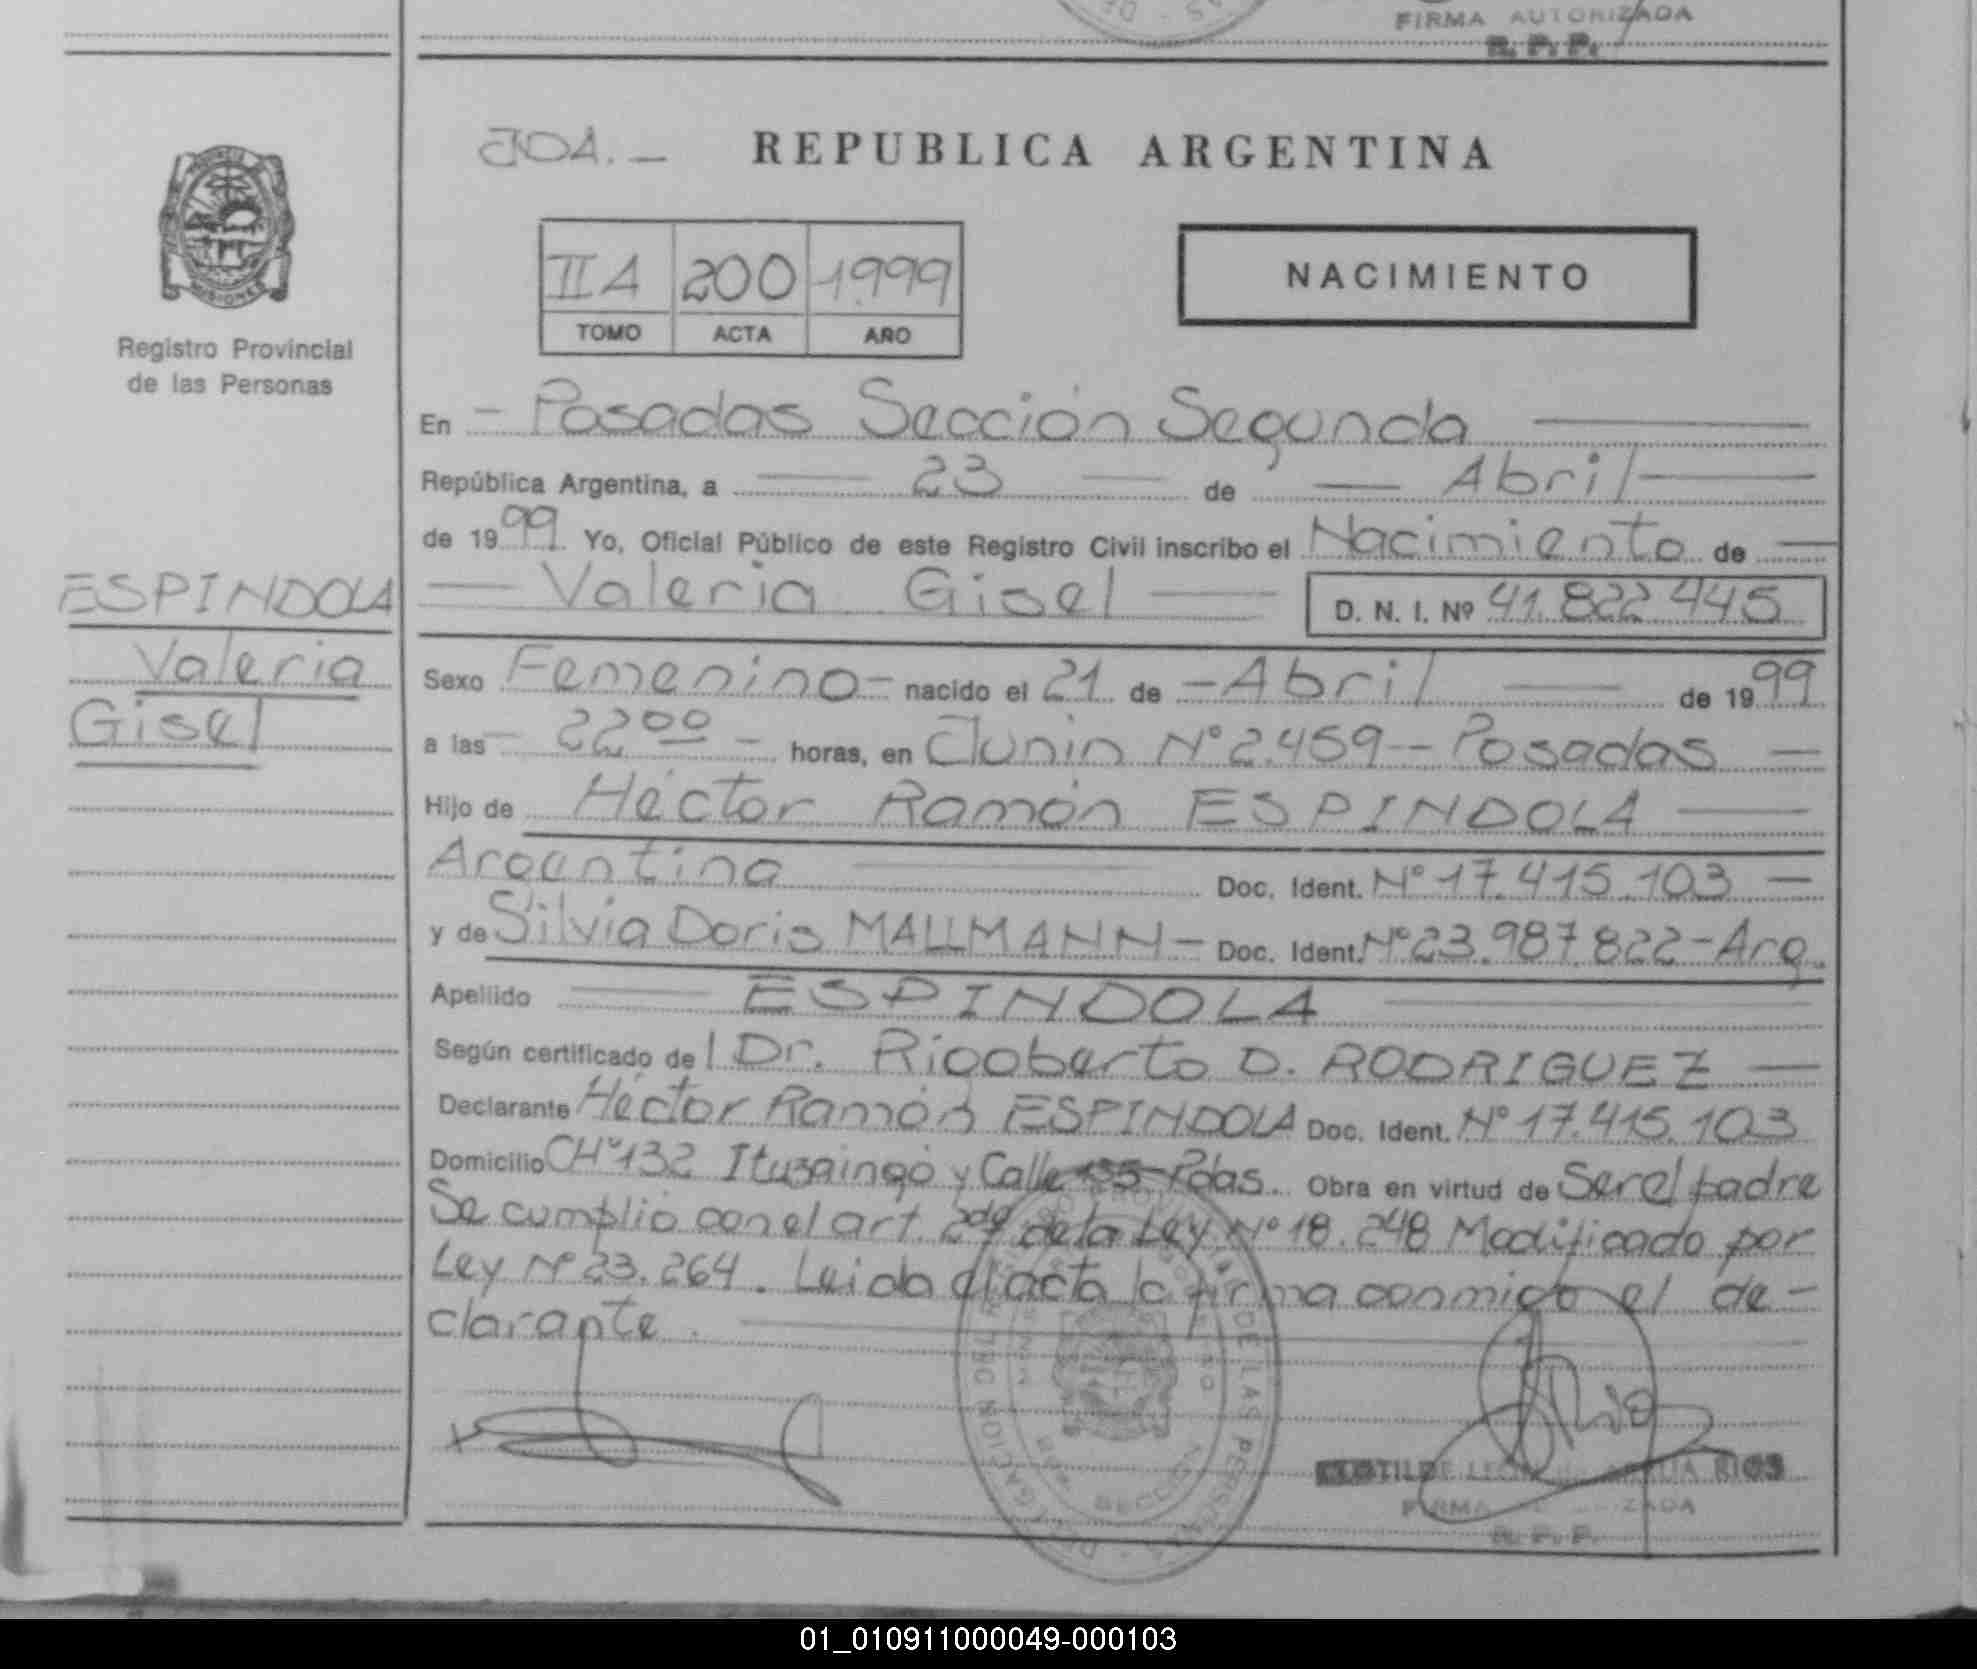 FIRMA AUTORIZADA
R. P. P.
REPUBLICA ARGENTINA
MISIONES
Registro Provincial
de las Personas
IIA 200 1.999
TOMO ACTA AÑO
NACIMIENTO
En - Posadas Sección Segunda
República Argentina, a 23 de Abril
de 1999 Yo, Oficial Público de este Registro Civil inscribo el Nacimiento de
Valeria Gisel D. N. I. Nº 41.822.445
ESPINDOLA
Valeria
Gisel
Sexo Femenino- nacido el 21 de -Abril de 1999
a las 22 00 - horas, en Junin Nº 2.459-- Posadas
Hijo de Héctor Ramón ESPINDOLA
Argentina Doc. Ident. Nº 17.415.103
y de Silvia Doris MALLMANN- Doc. Ident. Nº 23.987.822-Arg.
Apellido ESPINDOLA
Según certificado de l Dr. Rigoberto D. RODRIGUEZ
Declarante Héctor Ramón ESPINDOLA Doc. Ident. Nº 17.415.103
Domicilio CHº132 Ituzaingó y Calle 135-Pdas. Obra en virtud de Ser el padre
Se cumplió con el art. 2do de la Ley Nº 18.248 Modificado por
Ley Nº 23.264. Leida el acta la firma conmigo el de-
clarante.
DELEGACION DE LAS PERSONAS
SECCION
CLOTILDE RIOS
FIRMA AUTORIZADA
R. P. P.
01_010911000049-000103